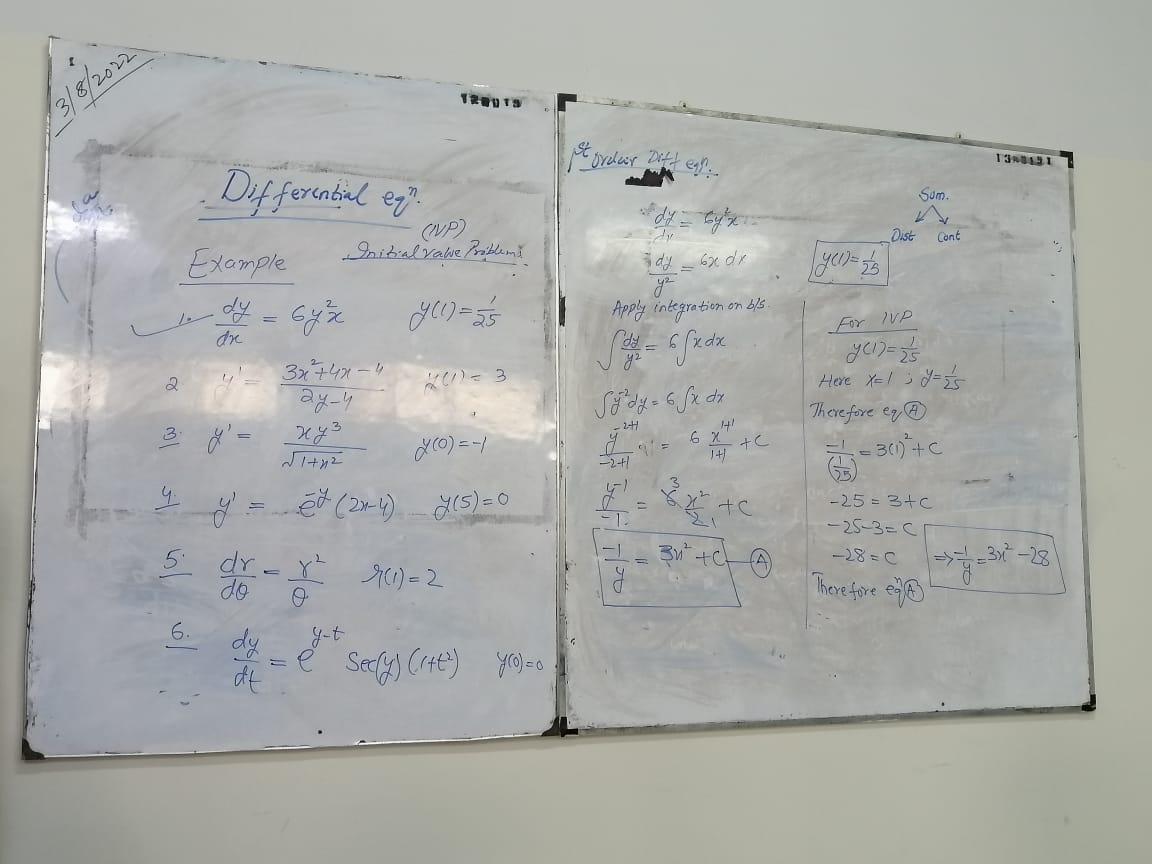 3/8/2022
Differential eqⁿ.
(IVP)
Example Initial Value Problems
1. dy/dx = 6y²x y(1) = 1/25
2 y' = (3x²+4x-4)/(2y-4) y(1) = 3
3. y' = xy³/√(1+x²) y(0) = -1
4. y' = e⁻ʸ (2x-4) y(5) = 0
5. dr/dθ = r²/θ r(1) = 2
6. dy/dt = e^(y-t) Sec(y) (1+t²) y(0) = 0
1st Order Diff eqⁿ.
dy/dx = 6y²x
dy/y² = 6x dx
Apply integration on b/s.
∫ dy/y² = 6 ∫ x dx
∫ y⁻² dy = 6 ∫ x dx
y^(-2+1)/(-2+1) = 6 x^(1+1)/(1+1) + C
y⁻¹/-1 = 6 3 x²/2 1 + C
-1/y = 3x² + C — (A)
Sum.
Dist Cont
y(1) = 1/25
For IVP
y(1) = 1/25
Here x=1 ; y = 1/25
Therefore eq (A)
-1/(1/25) = 3(1)² + C
-25 = 3 + C
-25-3 = C
-28 = C
Therefore eqⁿ (A)
⇒ -1/y = 3x² - 28